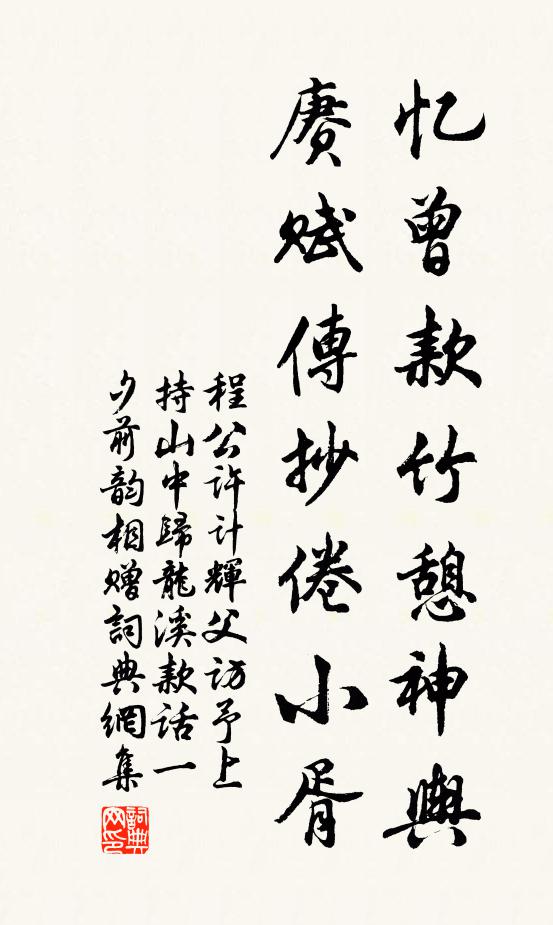 忆曾款竹憩神輿
赓赋傳抄倦小胥
程公许计輝父访予上
持山中歸龍溪款话一
夕前韵相赠詞典網集
詞典网印